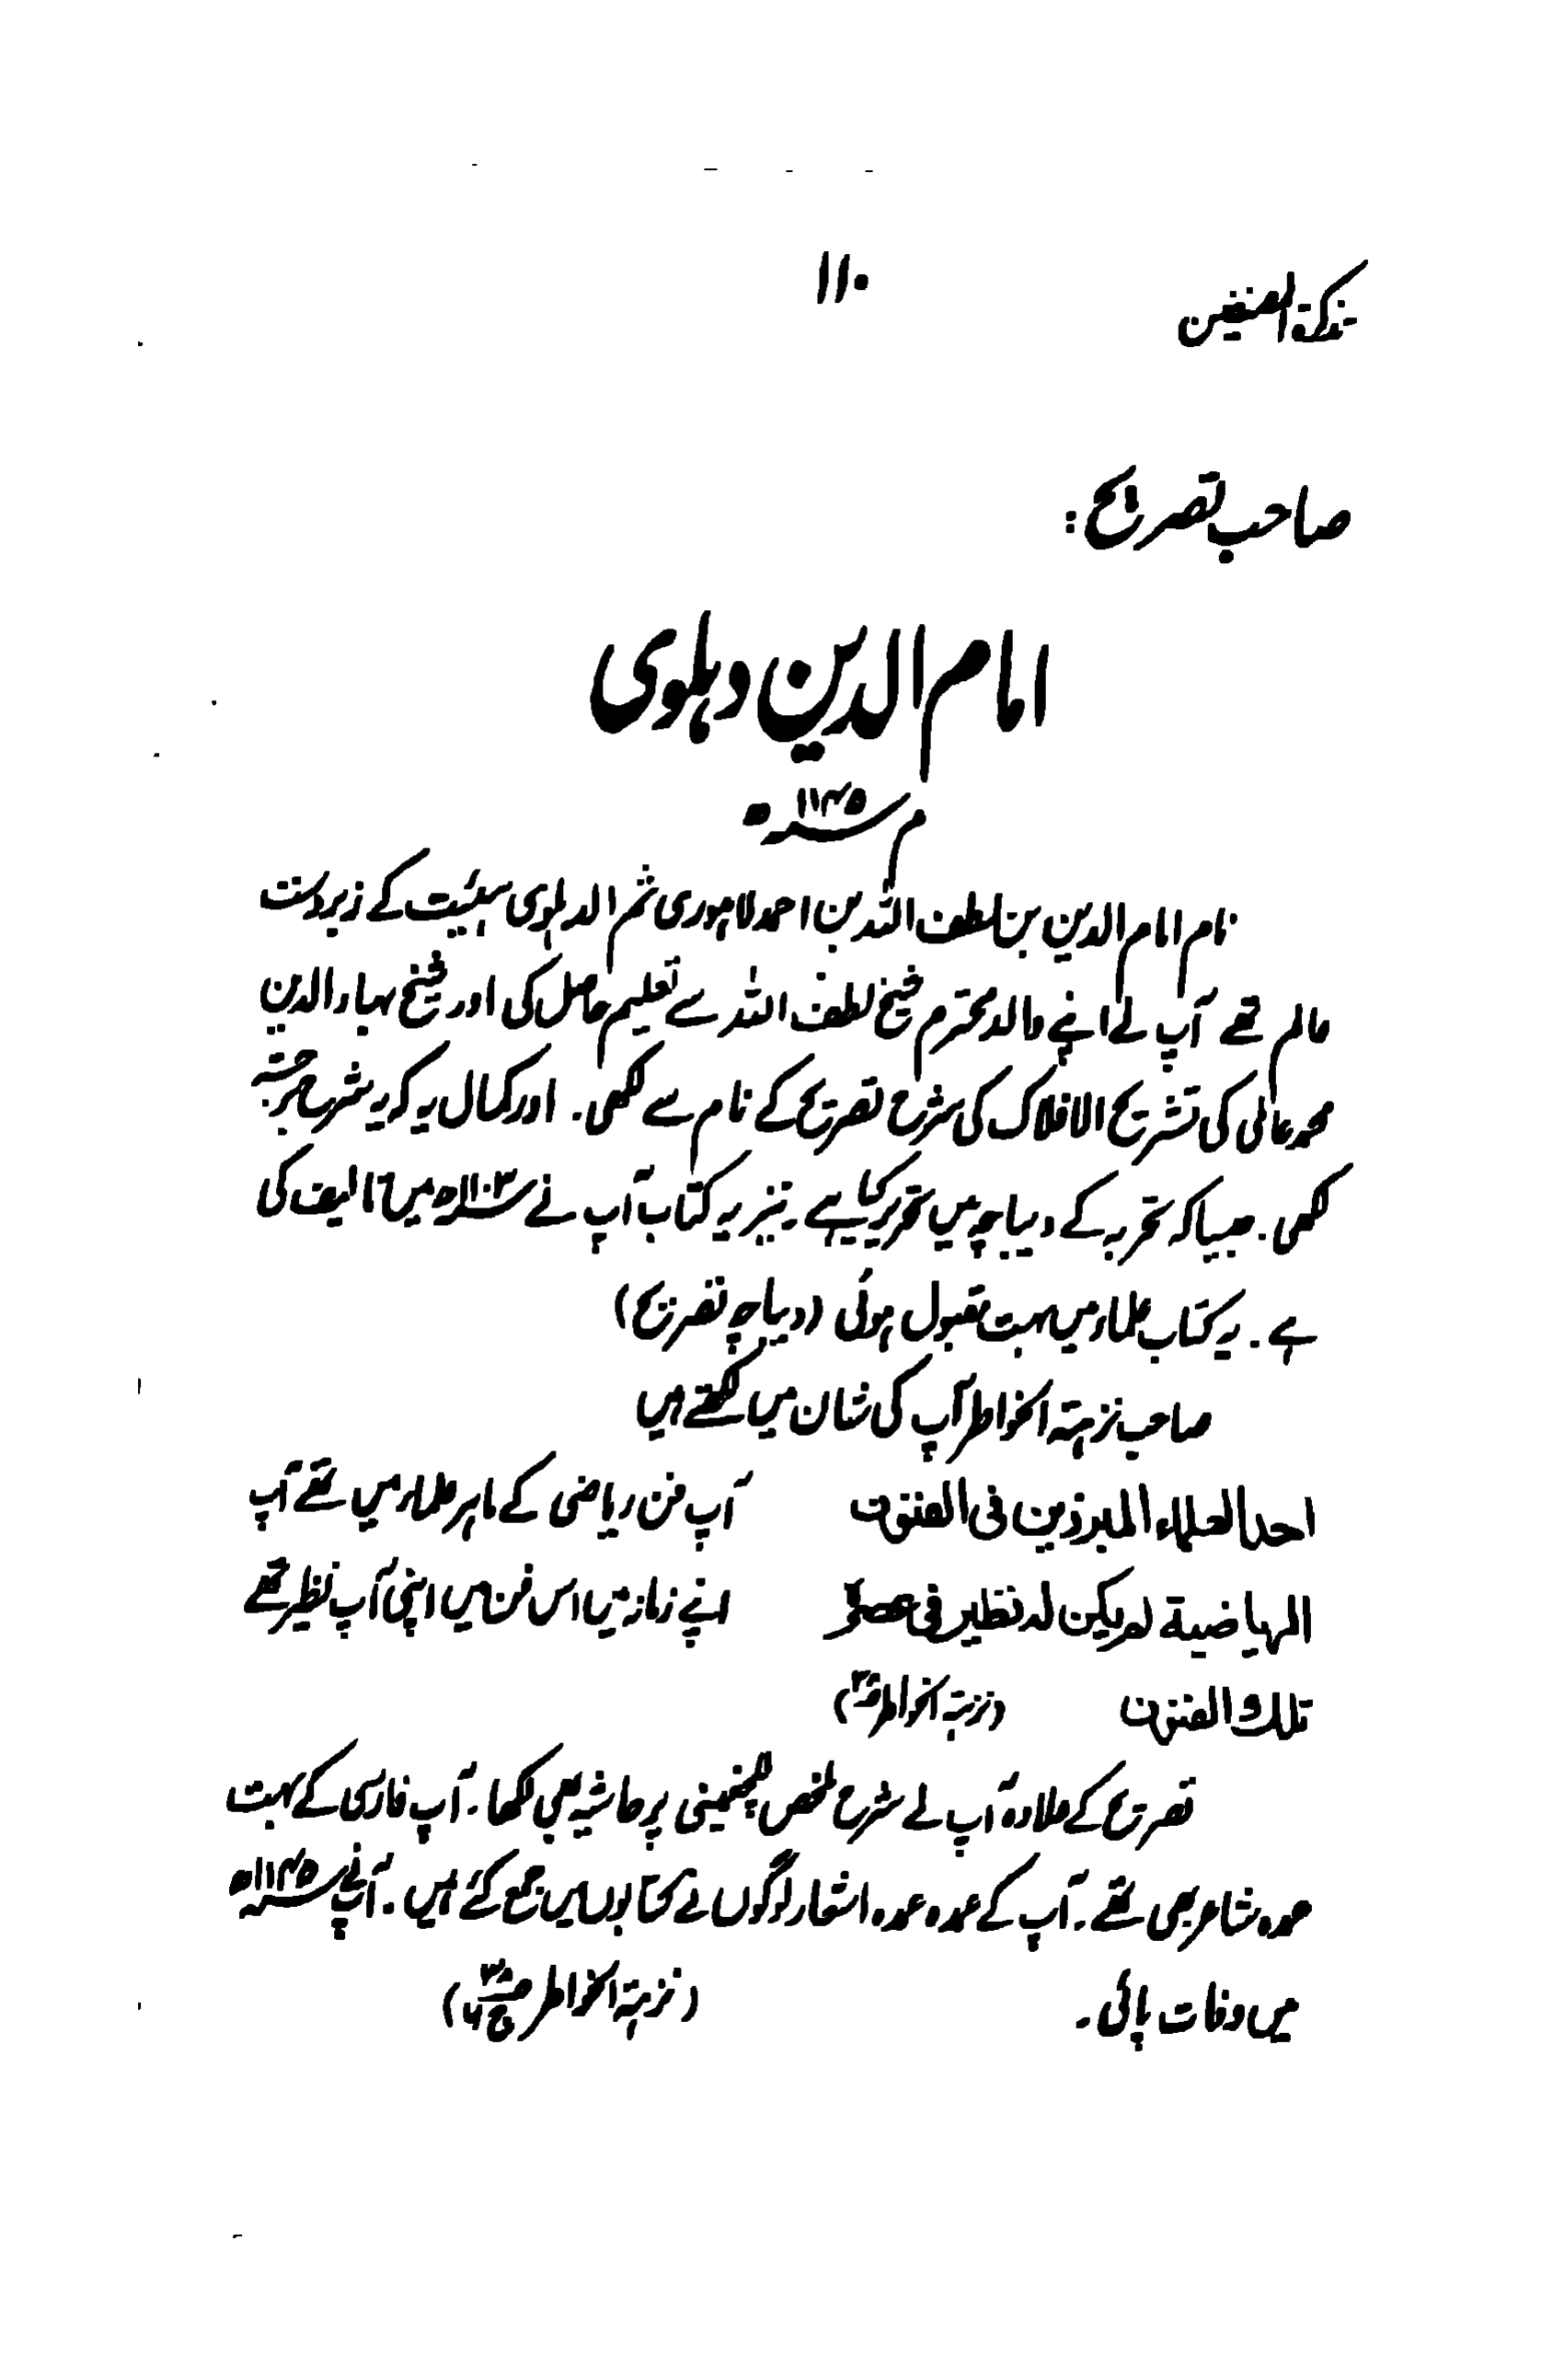 تذکرۃ المصنفین
۱۱۰
صاحب تصریح :
امام الدین دہلوی
م ۱۱۴۵ھ
نام امام الدین بن لطف اللہ بن احمد لاہوری ثم الدہلوی ہیئیت کے زبردست
عالم تھے آپ نے اپنے والد محترم شیخ لطف اللہ سے تعلیم حاصل کی اور شیخ بہاء الدین
محمد عاملی کی تشریح الافلاک کی شرح تصریح کے نام سے لکھی۔ اور کمال یہ کہ یہ شرح برجستہ
لکھی۔ جیسا کہ تحریر کے دیباچہ میں تحریر کیا ہے۔ نیز یہ کتاب آپ نے ۱۱۰۳ھ میں تالیف کی
ہے۔ یہ کتاب علماء میں بہت مقبول ہوئی (دیباچہ تصریح)
صاحب نزہتہ الخواطر آپ کی شان میں لکھتے ہیں
احد العلماء المبرزین فی الفنون
آپ فن ریاضی کے ماہر علماء میں تھے آپ
الریاضیة لم یکن لہ نظیر فی عصرہ
اپنے زمانہ میں اس فن میں اپنی آپ نظیر تھے
تلک الفنون (نزہتہ الخواطر)
تصریح کے علاوہ آپ نے شرح ملخص چغمینی پر حاشیہ بھی لکھا۔ آپ فارسی کے بہت
عمدہ شاعر بھی تھے۔ آپ کے عمدہ عمدہ اشعار لوگوں نے کتابوں میں جمع کئے ہیں۔ آپ نے ۱۱۴۵ھ
میں وفات پائی۔ (نزہتہ الخواطر ج۶)